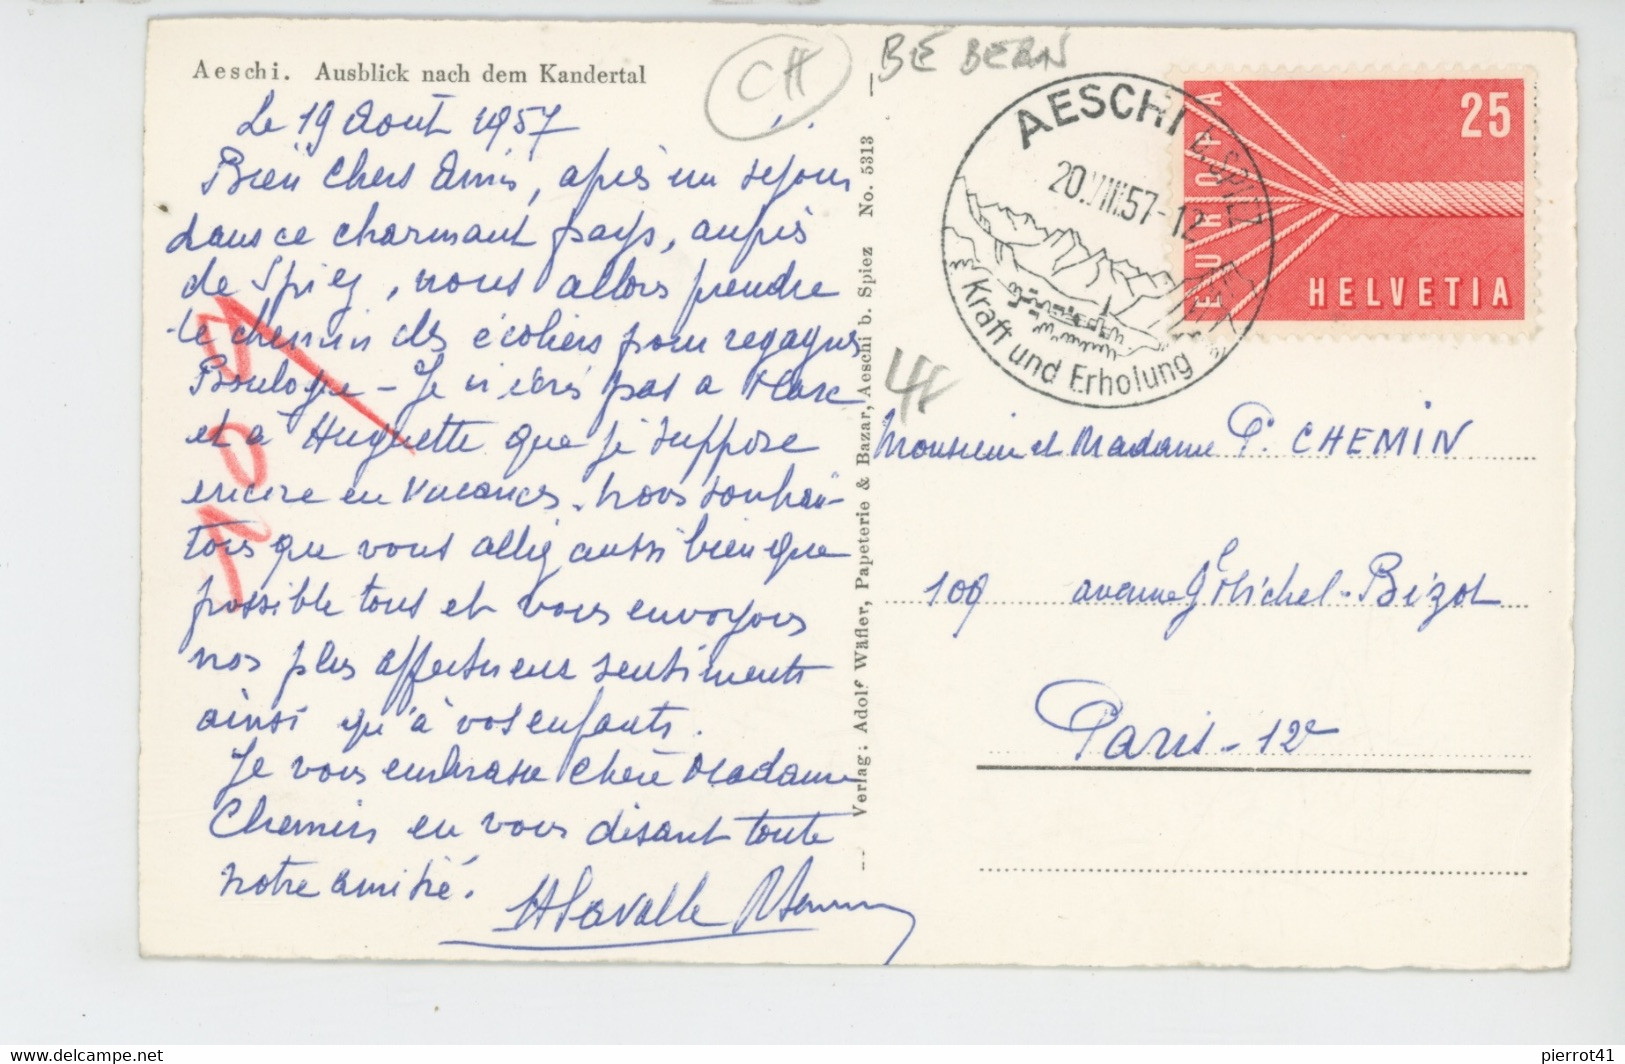 Aeschi. Ausblick nach dem Kandertal
CH
BE BERN
Le 19 Aout 1957
Bien Chers Amis, après un séjour
dans ce charmant pays, auprès
de Spiez, nous allons prendre
le chemin des écoliers pour regagner
Boulogne - Je n'écris pas à Marc
et à Huguette que je suppose
encore en vacances. Nous souhai-
tons que vous alliez aussi bien que
possible tous et vous envoyons
nos plus affectueux sentiments
ainsi qu'à vos enfants.
Je vous embrasse chère Madame
Chemin en vous disant toute
notre amitié.
Lavalle
Verlag: Adolf Wäfler, Papeterie & Bazar, Aeschi b. Spiez No. 5313
AESCHI b. SPIEZ
20.VIII.57-12
Kraft und Erholung
EUROPA
25
HELVETIA
Monsieur et Madame P. CHEMIN
109 avenue Gl Michel-Bizot
Paris - 12e
https://www.delcampe.net
pierrot41